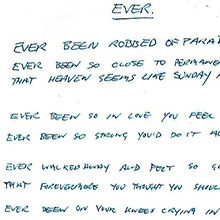 EVER.
EVER BEEN ROBBED OF PARA
EVER BEEN SO CLOSE TO PERMANE
THAT HEAVEN SEEMS LIKE SUNDAY
EVER BEEN SO IN LOVE YOU FEEL
EVER BEEN SO STRONG YOU'D DO IT
EVER WALKED AWAY AND FELT SO
THAT FOREVERMORE YOU THOUGHT YOU SHOUL
EVER BEEN ON YOUR KNEES CRYING IN